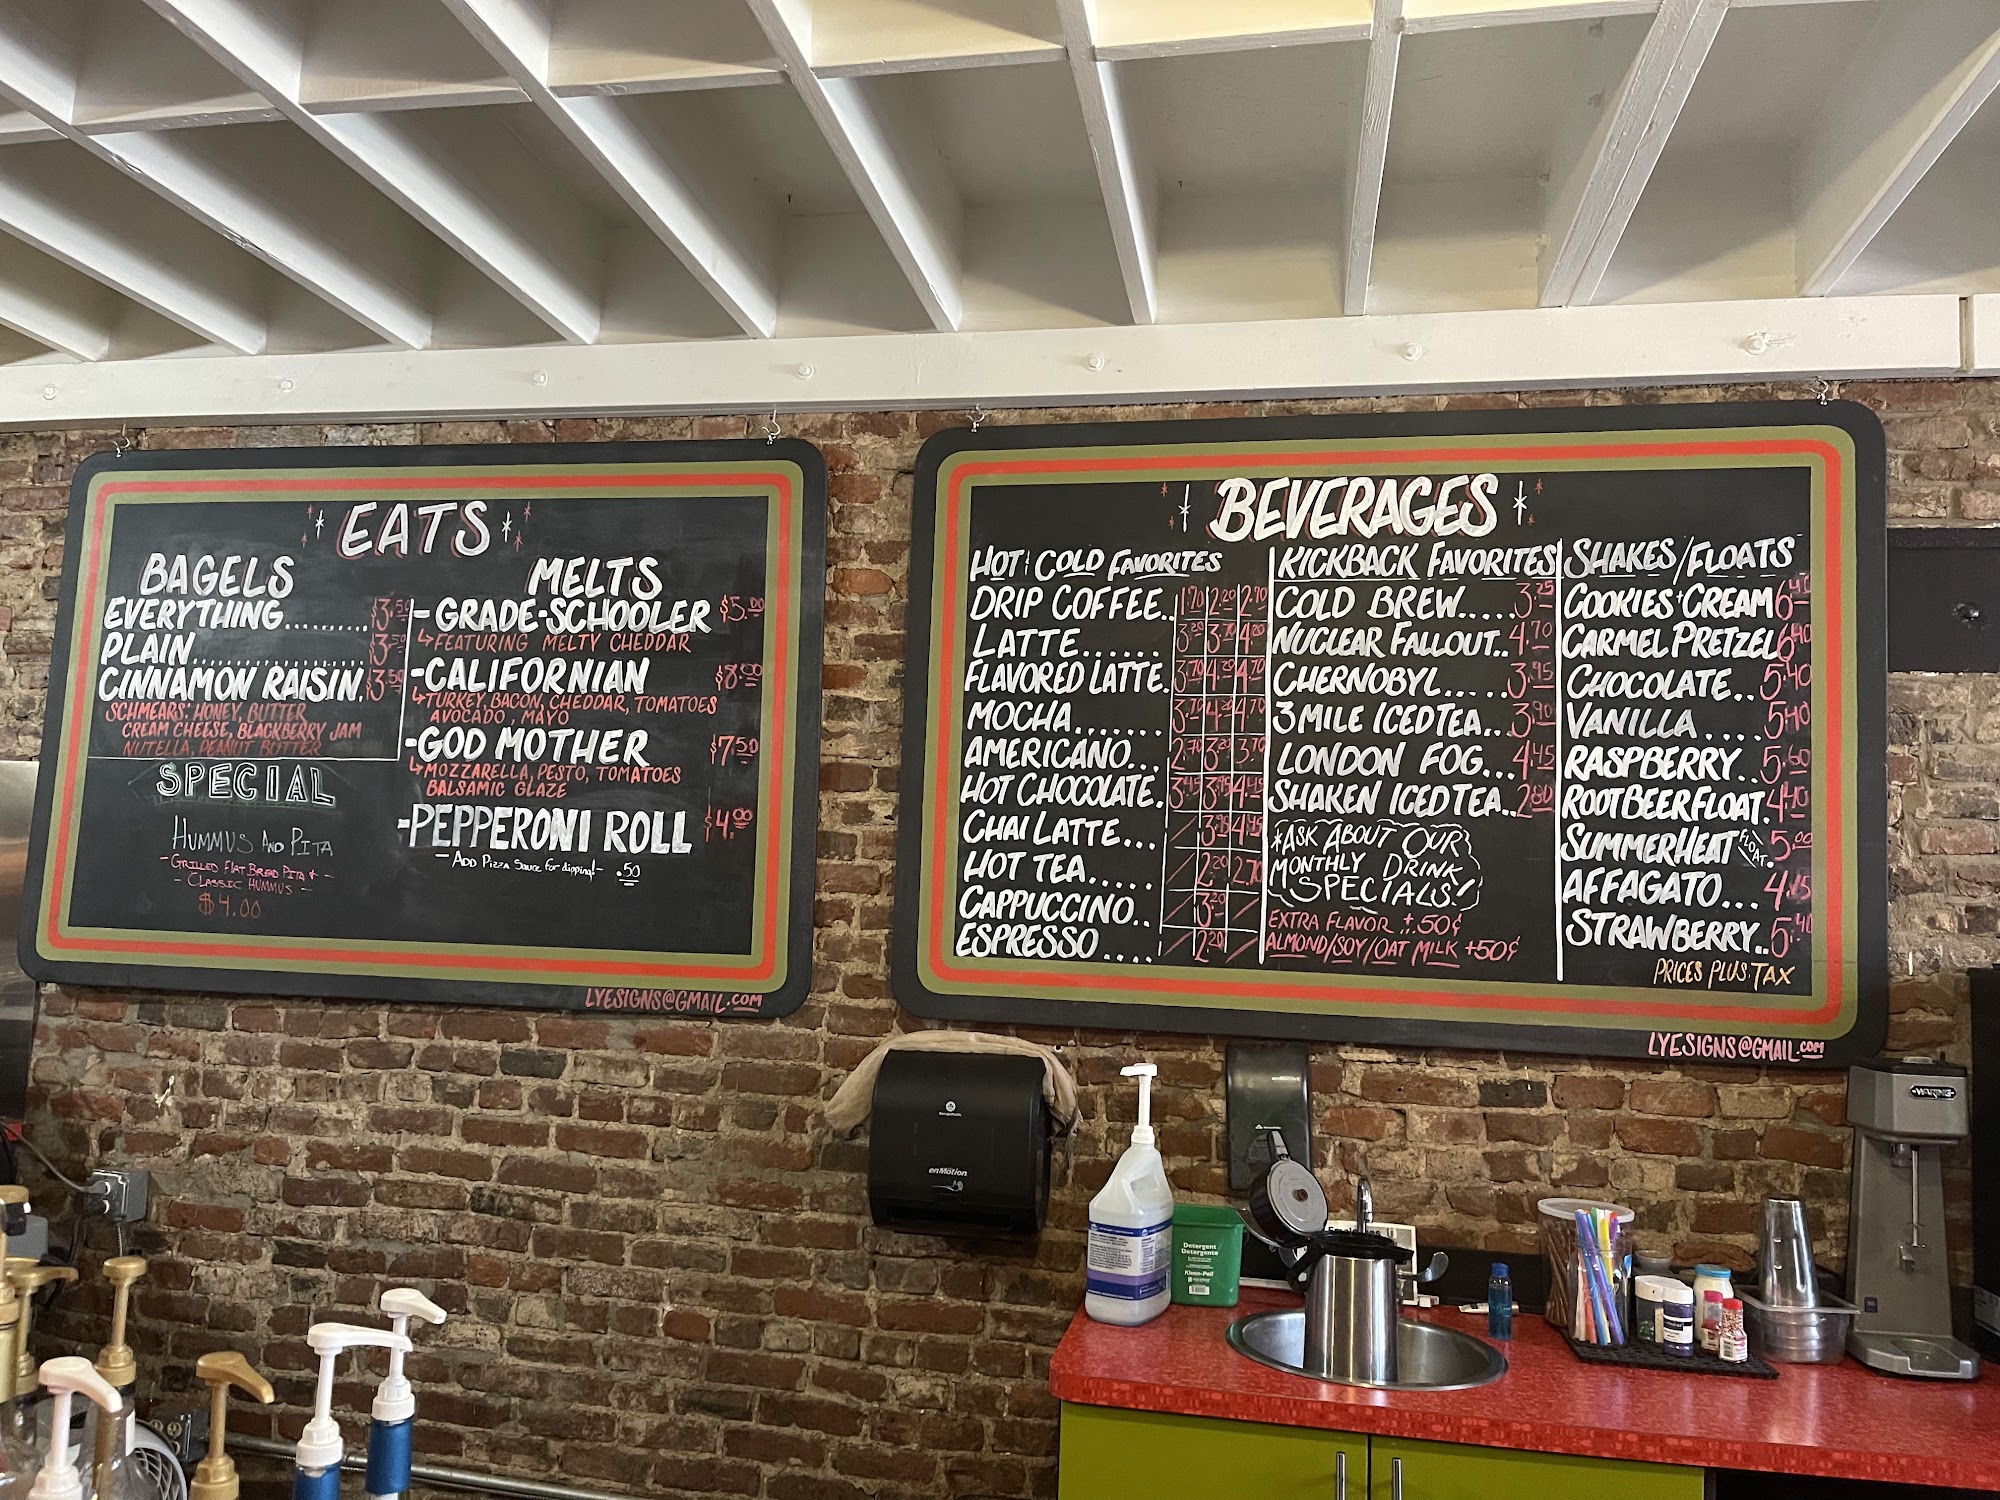 EATS
BAGELS
EVERYTHING.......... $3.50
PLAIN.................. $3.50
CINNAMON RAISIN. $3.50
SCHMEARS: HONEY, BUTTER
CREAM CHEESE, BLACKBERRY JAM
NUTELLA, PEANUT BUTTER
SPECIAL
HUMMUS AND PITA
- GRILLED FLAT BREAD PITA + -
- CLASSIC HUMMUS -
$4.00
MELTS
- GRADE-SCHOOLER $5.00
FEATURING MELTY CHEDDAR
- CALIFORNIAN $8.00
TURKEY, BACON, CHEDDAR, TOMATOES
AVOCADO, MAYO
- GOD MOTHER $7.50
MOZZARELLA, PESTO, TOMATOES
BALSAMIC GLAZE
- PEPPERONI ROLL $4.00
- Add Pizza Sauce for dipping! - .50
LYESIGNS@GMAIL.COM
BEVERAGES
HOT & COLD FAVORITES
DRIP COFFEE.. 1.70 2.20 2.70
LATTE...... 3.20 3.70 4.20
FLAVORED LATTE. 3.70 4.20 4.70
MOCHA....... 3.70 4.20 4.70
AMERICANO... 2.70 3.20 3.70
HOT CHOCOLATE. 3.45 3.95 4.45
CHAI LATTE... / 3.95 4.45
HOT TEA..... / 2.20 2.70
CAPPUCCINO.. / 3.20 /
ESPRESSO .... / 2.20 /
KICKBACK FAVORITES
COLD BREW..... 3.25
NUCLEAR FALLOUT.. 4.70
CHERNOBYL..... 3.95
3 MILE ICED TEA... 3.90
LONDON FOG... 4.45
SHAKEN ICED TEA.. 2.80
*ASK ABOUT OUR
MONTHLY DRINK
SPECIALS!
EXTRA FLAVOR +.50¢
ALMOND/SOY/OAT MILK +50¢
SHAKES/FLOATS
COOKIES+CREAM 6.40
CARMEL PRETZEL 6.40
CHOCOLATE.. 5.40
VANILLA .... 5.40
RASPBERRY.. 5.60
ROOT BEER FLOAT. 4.40
SUMMER HEAT FLOAT. 5.00
AFFAGATO... 4.15
STRAWBERRY.. 5.40
PRICES PLUS TAX
LYESIGNS@GMAIL.COM
WARING
enMotion
Detergent
Detergente
Kleen-Pail